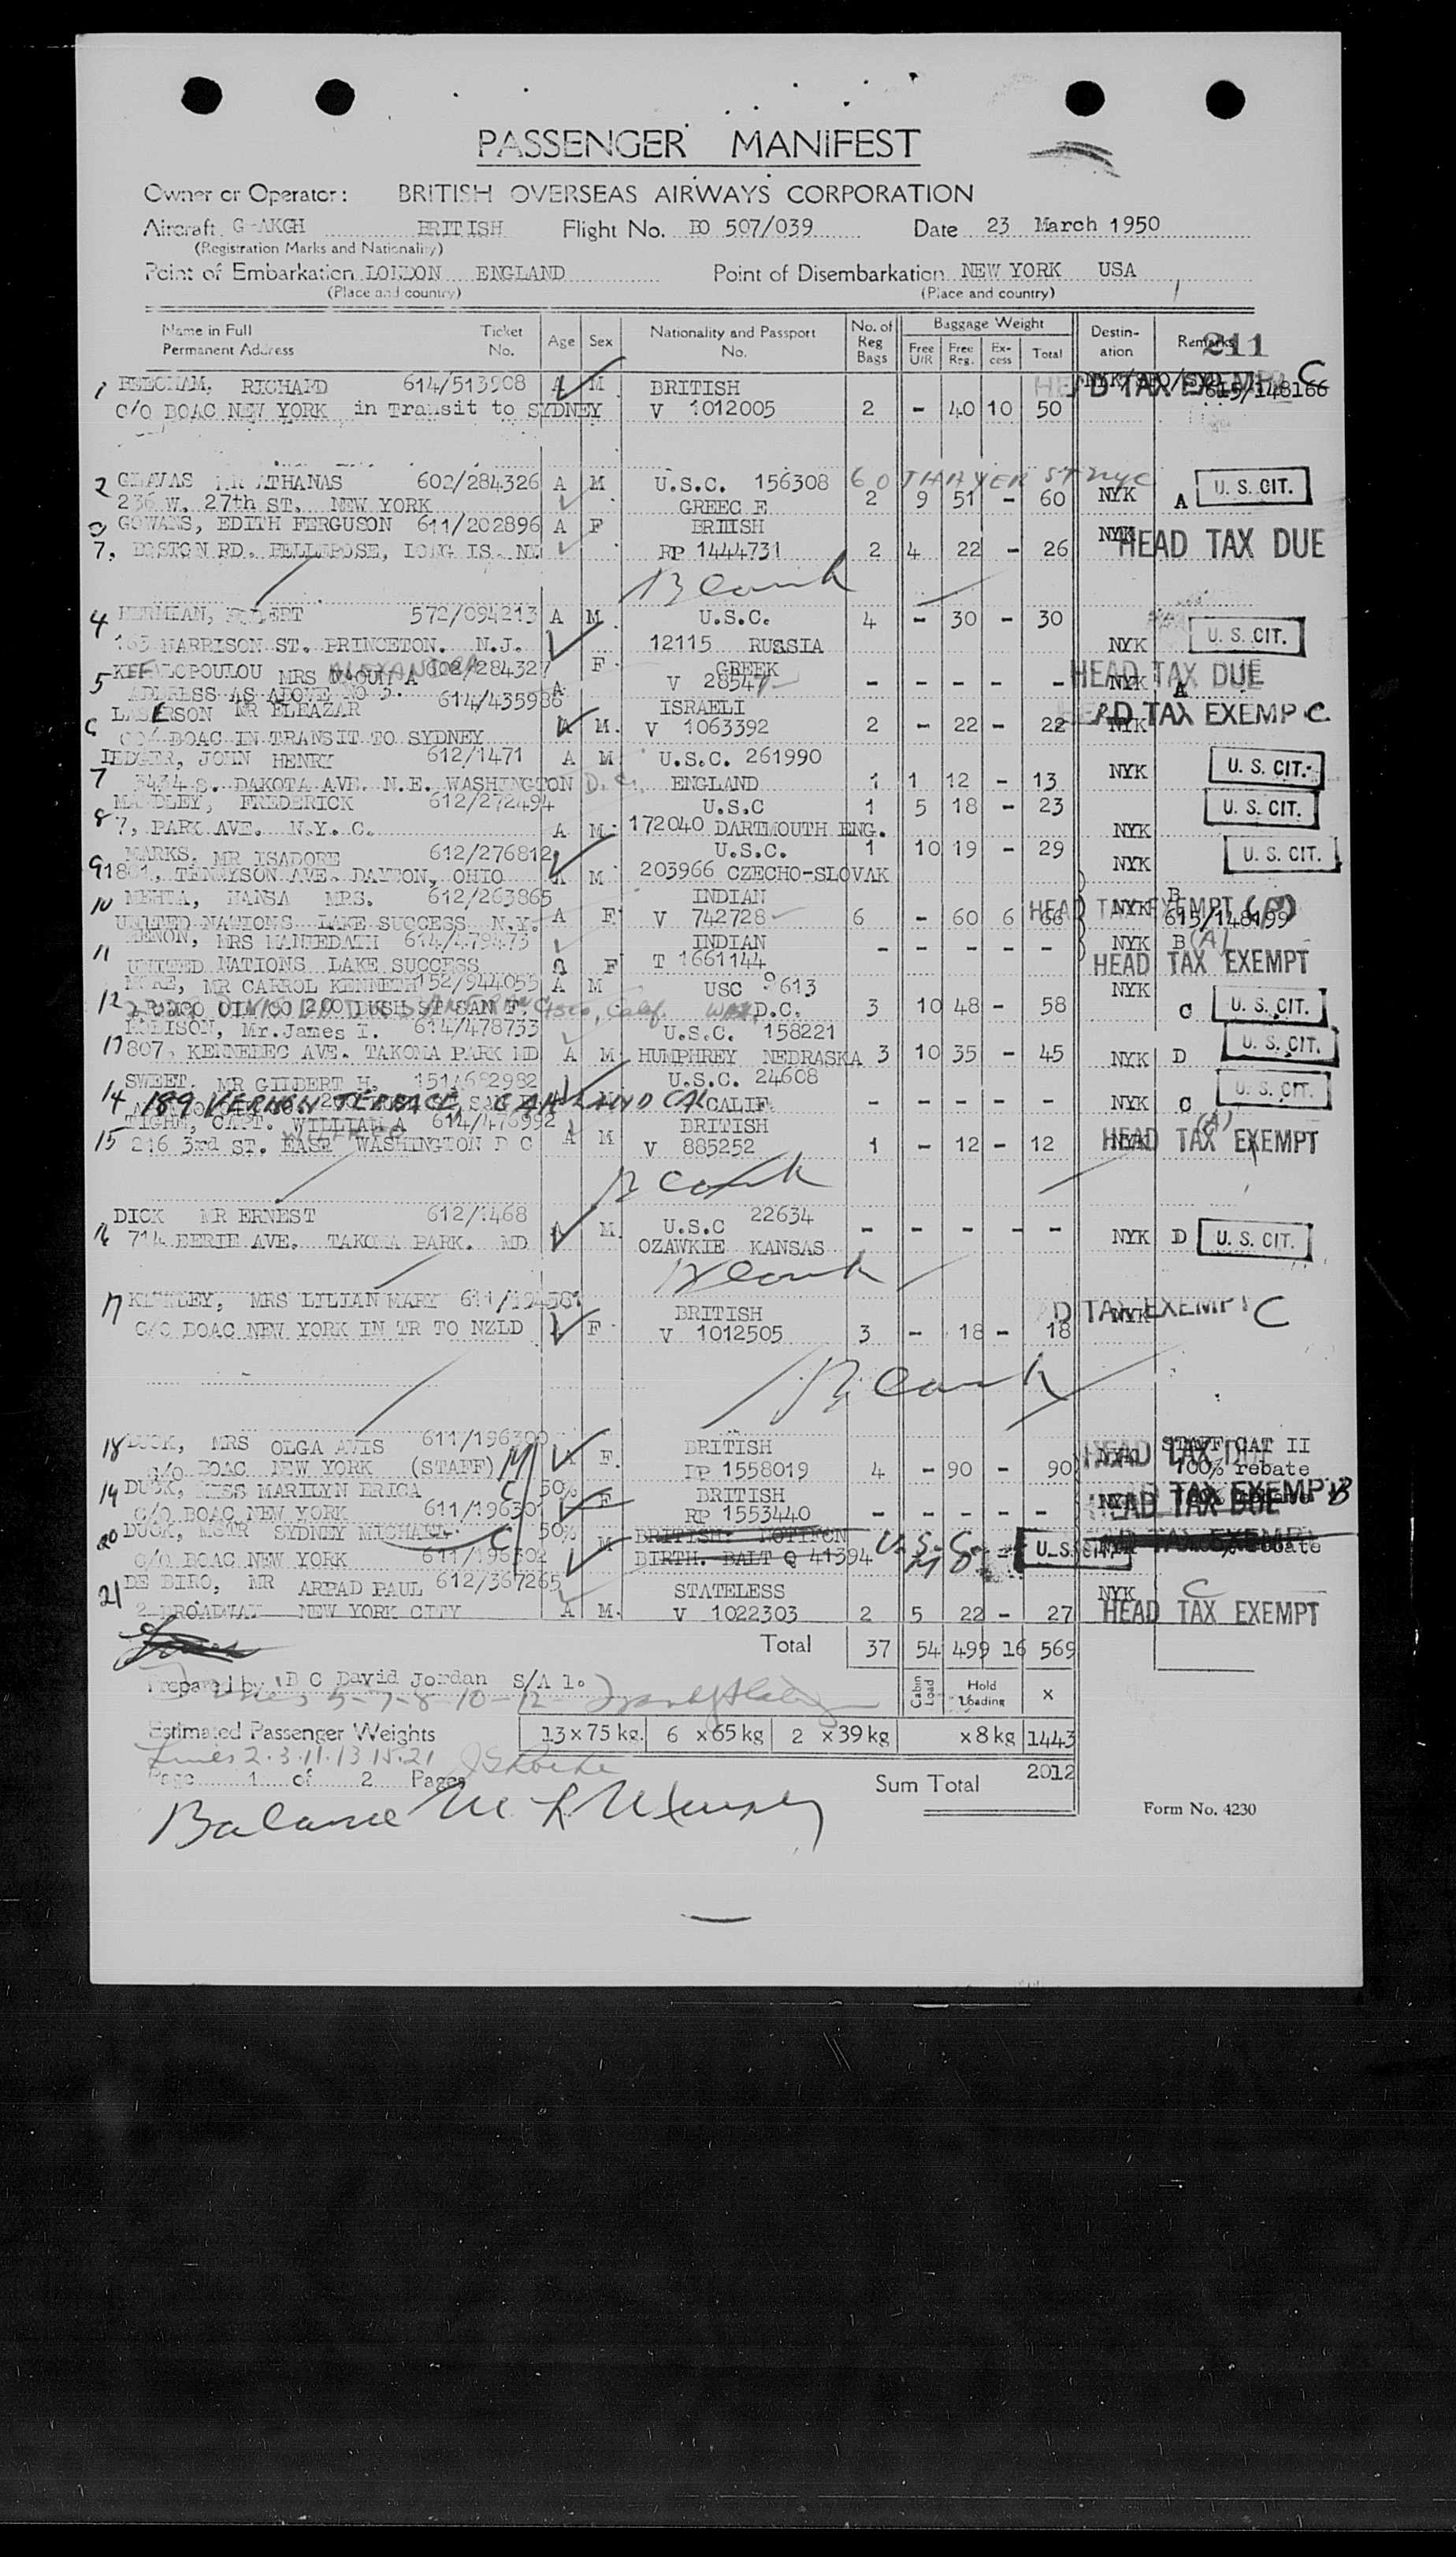 PASSENGER MANIFEST
Owner or Operator: BRITISH OVERSEAS AIRWAYS CORPORATION
Aircraft G-AKGH BRITISH Flight No. BO 507/039 Date 23 March 1950
(Registration Marks and Nationality)
Point of Embarkation LONDON ENGLAND Point of Disembarkation NEW YORK USA
(Place and country) (Place and country)
Name in Full Permanent Address Ticket No. Age Sex Nationality and Passport No. No. of Reg Bags Baggage Weight Free U/R Free Reg. Excess Total Destination Remarks
211
1 BEECHAM. RICHARD 614/513908 A M BRITISH HEAD TAX EXEMPT C
C/O BOAC NEW YORK in Transit to SYDNEY V 1012005 2 - 40 10 50 615/148166
2 GLAVAS MR ATHANAS 602/284326 A M U.S.C. 156308 60 THAYER ST NYC
236 W. 27th ST. NEW YORK GREECE 2 9 51 - 60 NYK A U. S. CIT.
3 GOWANS, EDITH FERGUSON 611/202896 A F BRITISH NYK
7. BOSTON RD. BELLEROSE, LONG IS. RP 1444731 2 4 22 - 26 HEAD TAX DUE
Blank
4 572/094213 A M. U.S.C. 4 - 30 - 30
163 HARRISON ST. PRINCETON. N.J. 12115 RUSSIA NYK U. S. CIT.
5 MRS ALEXANDRA 602/284327 F. GREEK HEAD TAX DUE
ADDRESS AS ABOVE NO 3. A V 28547 - - - - - NYK A
6 MR ELEAZAR 614/435986 ISRAELI
BOAC IN TRANSIT TO SYDNEY A M. V 1063392 2 - 22 - 22 NYK HEAD TAX EXEMP C
7 LEDGER, JOHN HENRY 612/1471 A M U.S.C. 261990
3434 S. DAKOTA AVE. N.E. WASHINGTON D.C. ENGLAND 1 1 12 - 13 NYK U. S. CIT.
8 FREDERICK 612/272494 U.S.C 1 5 18 - 23 U. S. CIT.
7, PARK AVE. N.Y.C. A M. 172040 DARTMOUTH ENG. NYK
9 MARKS. MR ISADORE 612/276812 U.S.C. 1 10 19 - 29 U. S. CIT.
TENNYSON AVE. DAYTON, OHIO A M 203966 CZECHO-SLOVAK NYK
10 MEHTA, HANSA MRS. 612/263865 INDIAN B
UNITED NATIONS LAKE SUCCESS N.Y. A F. V 742728 6 - 60 6 66 NYK HEAD TAX EXEMPT 615/148199
11 MENON, MRS 614/479473 INDIAN - - - - - NYK B (A)
UNITED NATIONS LAKE SUCCESS A F T 1661144 HEAD TAX EXEMPT
12 MR CARROL KENNETH 152/944055 A M USC NYK
ARMCO 200 BUSH ST SAN F. D.C. 3 10 48 - 58 C U. S. CIT.
13 ROBISON, Mr. James I. 614/478733 U.S.C. 158221
807, KENNEBEC AVE. TAKOMA PARK MD A M HUMPHREY NEDRASKA 3 10 35 - 45 NYK D U. S. CIT.
14 SWEET. MR GILBERT H. U.S.C. 24608 U. S. CIT.
189 VERNON TERRACE, OAKLAND CAL CALIF. - - - - - NYK C
15 CAPT. WILLIAM A 614/476992 A M BRITISH (A)
216 3rd ST. EAST WASHINGTON D C V 885252 1 - 12 - 12 NYK HEAD TAX EXEMPT
Blank
16 DICK MR ERNEST 612/1468 A M. U.S.C 22634 - - - - -
714 EERIE AVE. TAKOMA PARK. MD OZAWKIE KANSAS NYK D U. S. CIT.
Blank
17 MRS LILIAN MARY 611/194381 BRITISH D TAX EXEMPT C
C/O BOAC NEW YORK IN TR TO NZLD F V 1012505 3 - 18 - 18 NYK
Blank
18 DUCK, MRS OLGA AVIS 611/196300 M A F. BRITISH STAFF CAT II
C/O BOAC NEW YORK (STAFF) 1558019 4 - 90 90 100% rebate
19 DUCK, MISS MARILYN ERICA C 50% F BRITISH TAX EXEMP B
C/O BOAC NEW YORK 611/196301 RP 1553440 - - - - - HEAD TAX DUE
20 DUCK, MSTR SYDNEY MICHAEL C 50% M BRITISH U.S.C. U. S. CIT.
C/O BOAC NEW YORK 611/196302 BIRTH. 41394 rebate
21 DE BIRO, MR ARPAD PAUL 612/367265 STATELESS NYK C
2 BROADWAY NEW YORK CITY A M. V 1022303 2 5 22 - 27 HEAD TAX EXEMPT
Total 37 54 499 16 569
Prepared by B C David Jordan S/A 1. Cabin Load Hold Loading x
Lines 5-7-8-10-12
Estimated Passenger Weights 13 x 75 kg. 6 x 65 kg 2 x 39 kg x 8 kg 1443
Lines 2.3.11.13.15.21
Page 1 of 2 Pages Sum Total 2012
Balance
Form No. 4230